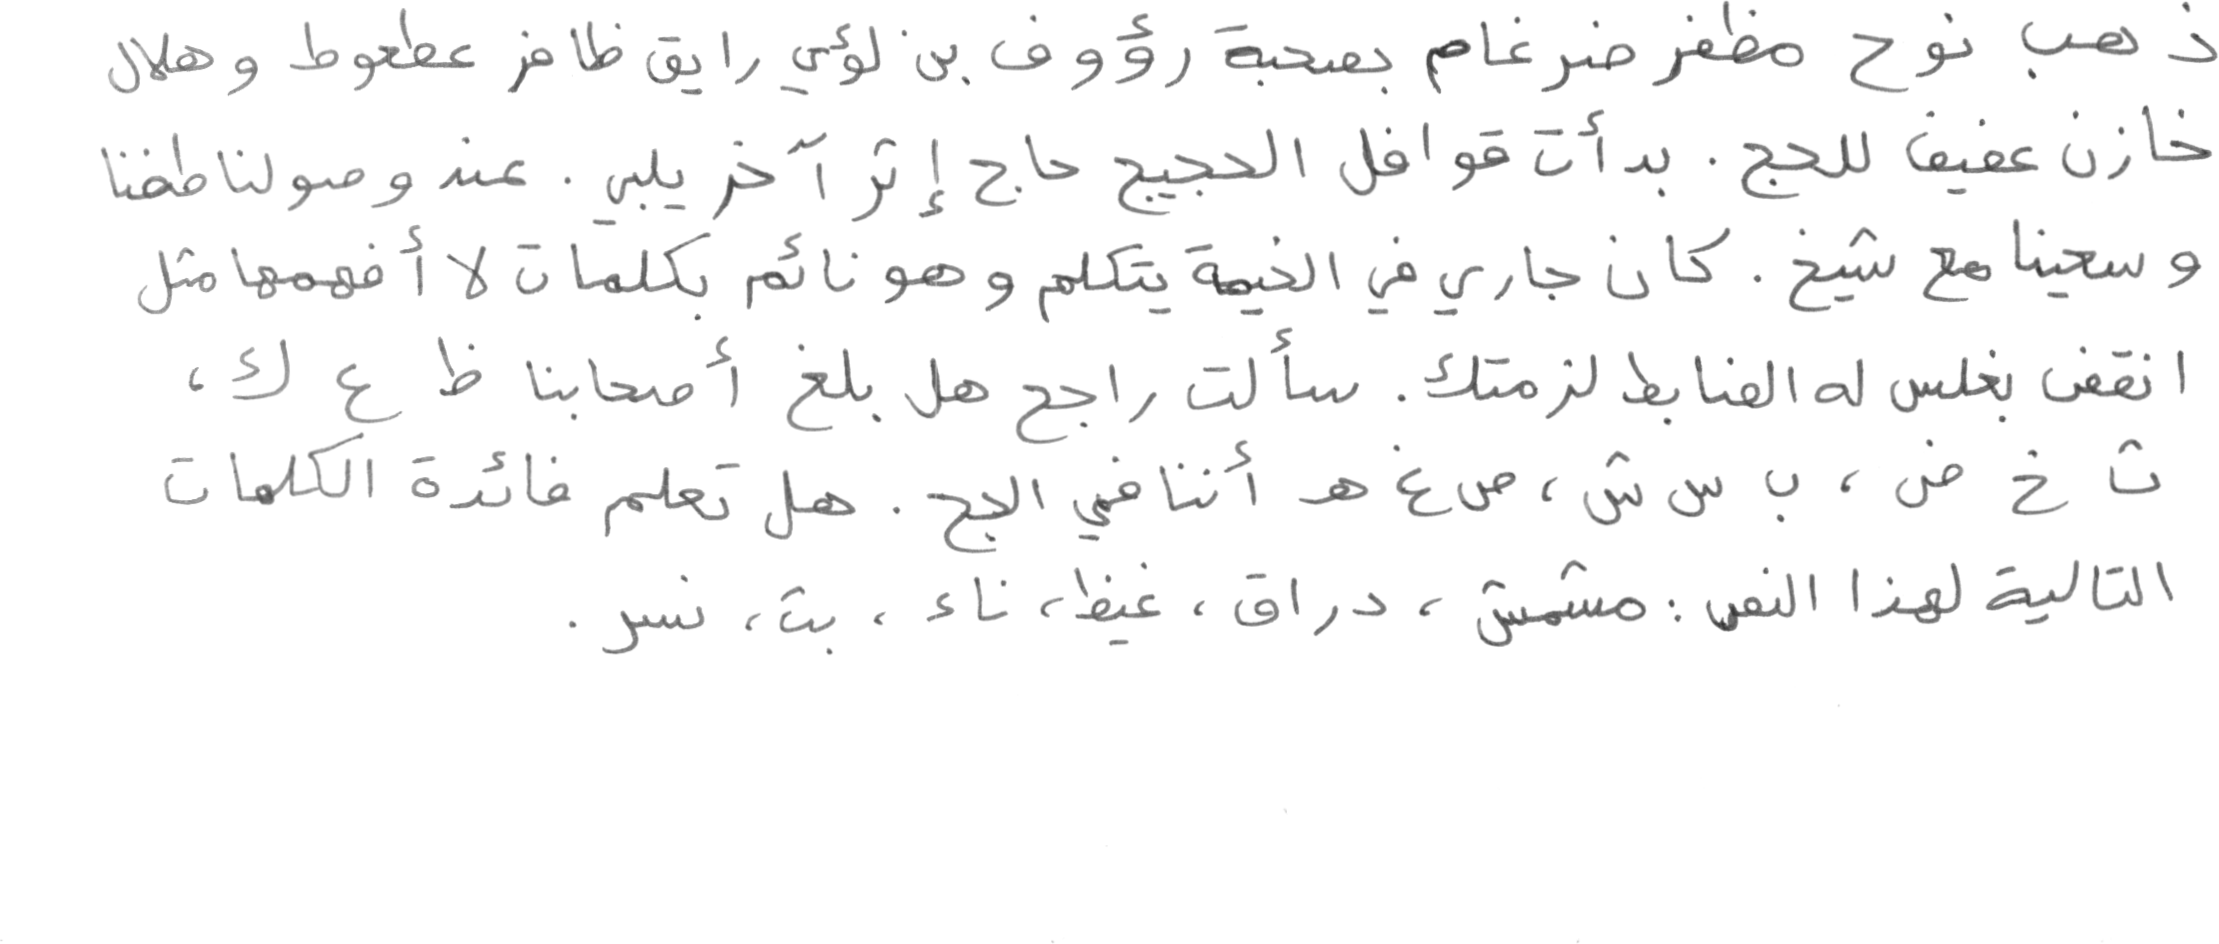 ذهب نوح مظفر ضرغام بصحبة رؤوف بن لؤي رايق ظافر عطعوط وهلال
خازن عفيف للحج . بدأت قوافل الحجيج حاج إثر آخر يلبي . عند وصولنا طفنا
وسعينا مع شيخ . كان جاري في الخيمة يتكلم وهو نائم بكلمات لا أفهمها مثل
انقض بغلس له الضابط لزمتك . سألت راجح هل بلغ أصحابنا ظ ع ك ،
ث خ ض ، ب س ش ، ص غ هـ أننا في الحج . هل تعلم فائدة الكلمات
التالية لهذا النص : مشمش ، دراق ، غيظ ، ناء ، بث ، نسر .